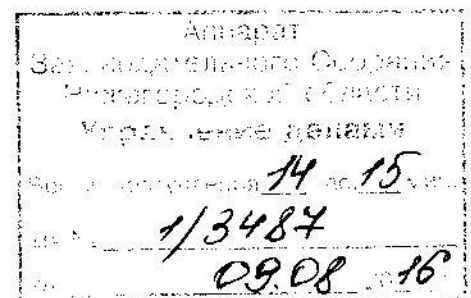 Аппарат
Законодательного Собрания
Нижегородской области
Управление делами
Время поступления 14 час. 15 мин.
Вх № 1/3487
09.08 16